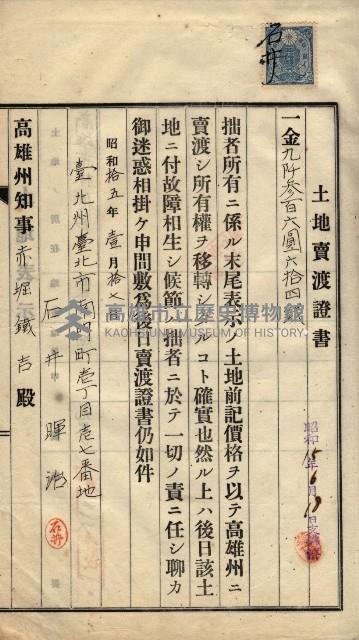 石井
土地賣渡證書
一金九阡參百六圓六拾四
昭和15年6月
拙者所有ニ係ル末尾表示ノ土地前記價格ヲ以テ高雄州ニ
賣渡シ所有權ヲ移轉シタルコト確實也然ル上ハ後日該土
地ニ付故障相生シ候節ハ拙者ニ於テ一切ノ責ニ任シ聊カ
御迷惑相掛ケ申間敷為後日賣渡證書仍如件
昭和拾五年壹月拾
臺北州臺北市西門町壱丁目壱七番地
石井
石井
高雄州知事赤堀鐵吉殿
高雄市立歷史博物館
KAOHSIUNG MUSEUM OF HISTORY